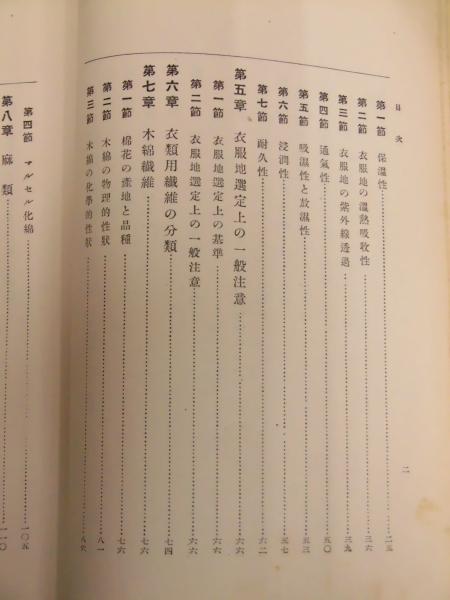 目次
第一節 保溫性……二五
第二節 衣服地の溫熱吸收性……三六
第三節 衣服地の紫外線透過……三九
第四節 通氣性……五〇
第五節 吸濕性と放濕性……五三
第六節 浸潤性……五七
第七節 耐久性……六二
第五章 衣服地選定上の一般注意……六六
第一節 衣服地選定上の基準……六六
第二節 衣服地選定上の一般注意……六六
第六章 衣類用纖維の分類……七四
第七章 木綿纖維……七六
第一節 棉花の產地と品種……七六
第二節 木綿の物理的性狀……八一
第三節 木綿の化學的性狀……八六
二
第四節 マルセル化綿……一〇五
第八章 麻類……一一〇